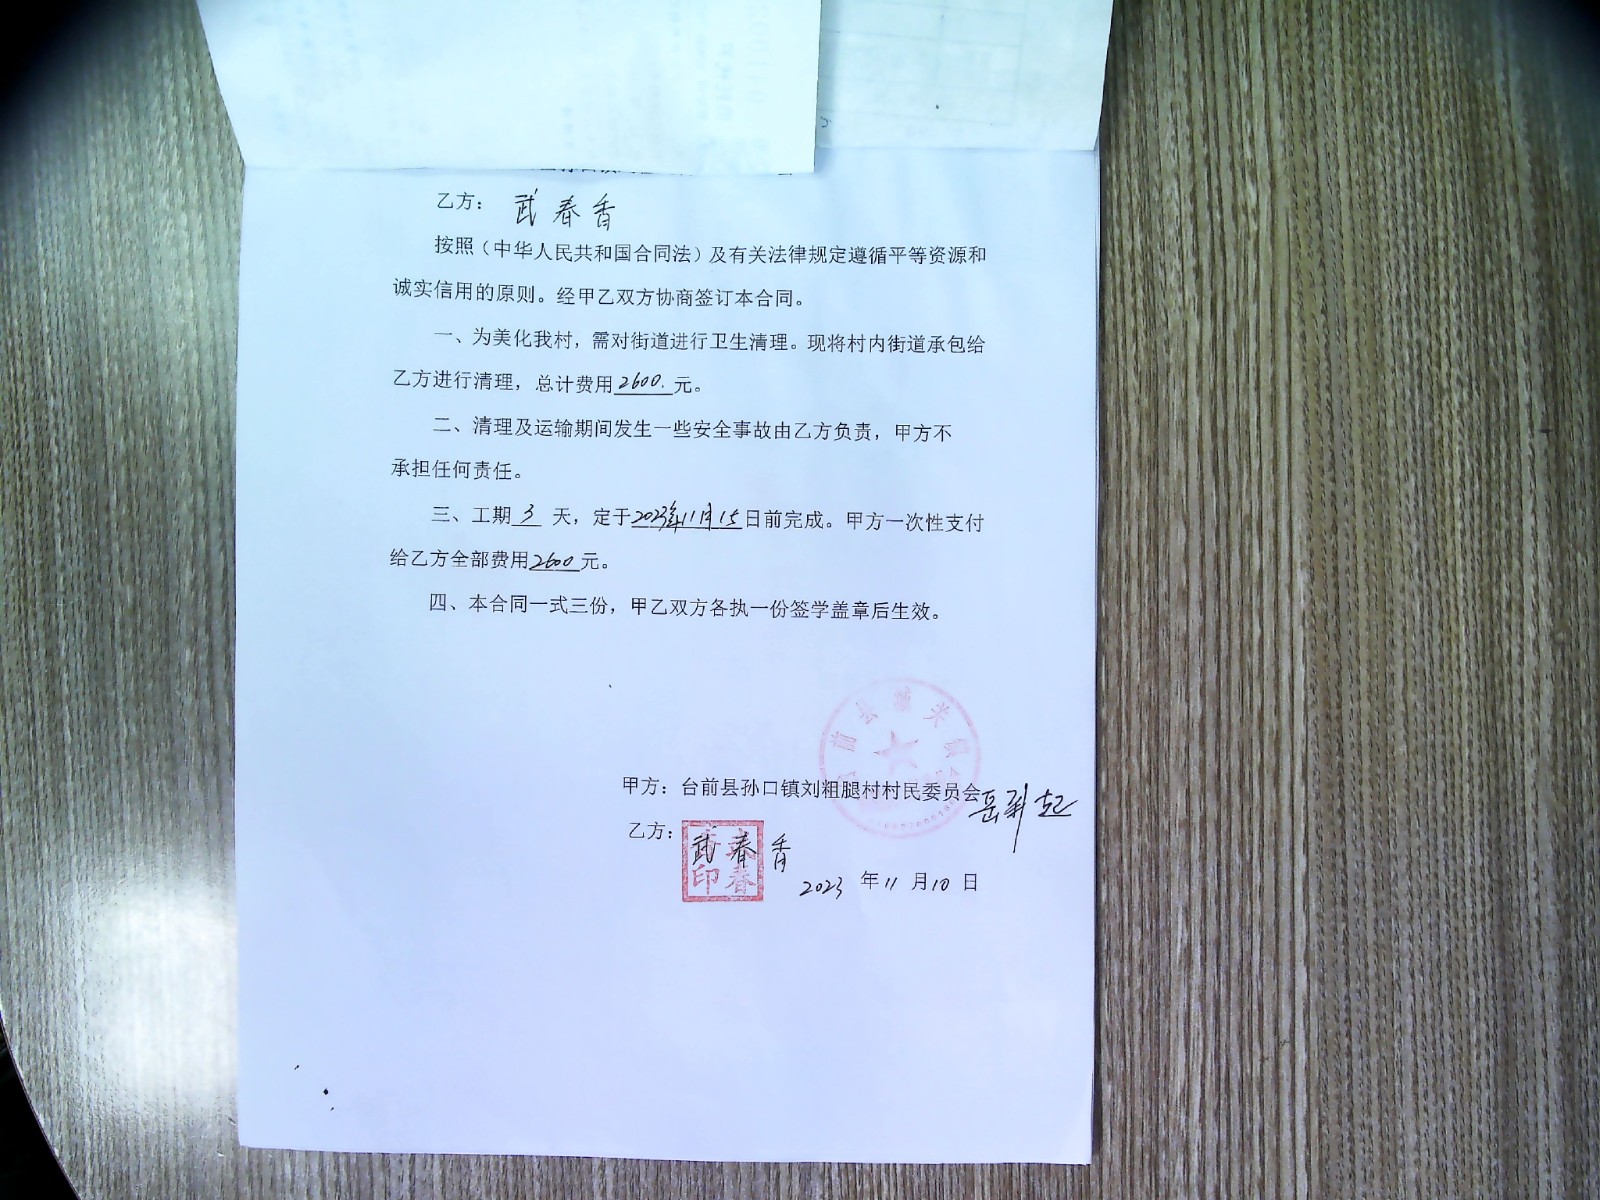 乙方： 武春香
按照（中华人民共和国合同法）及有关法律规定遵循平等资源和
诚实信用的原则。经甲乙双方协商签订本合同。
一、为美化我村，需对街道进行卫生清理。现将村内街道承包给
乙方进行清理，总计费用2600.元。
二、清理及运输期间发生一些安全事故由乙方负责，甲方不
承担任何责任。
三、工期 3 天，定于2023年11月15日前完成。甲方一次性支付
给乙方全部费用2600元。
四、本合同一式三份，甲乙双方各执一份签学盖章后生效。
甲方：台前县孙口镇刘粗腿村村民委员会
乙方：武春香
2023 年 11 月 10 日